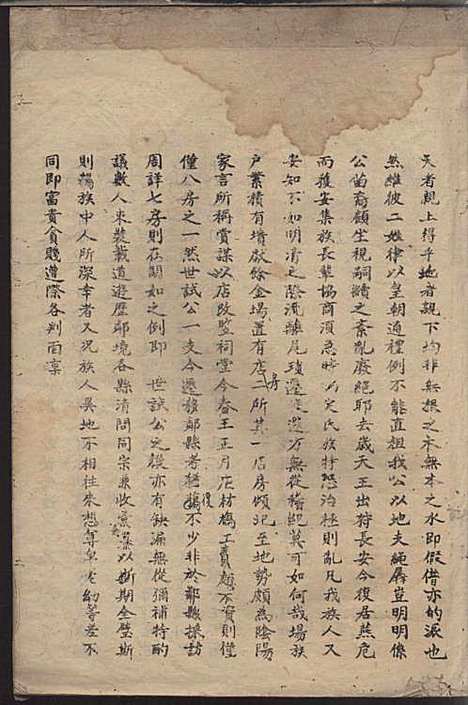 天者親上得乎地者親下均非無根之木無本之水即假借亦的派也
然維彼二姓律以皇朝通禮例不能直祖我公以地夫繩屬豈明明係
公苗裔顧生視嗣續之紊亂廢絕耶去歲天王出狩長安今復居燕危
而獲安集族長輩協商須急修氏族特恐治極則亂凡我族人又
安知不如明清之際流離尾瑣遷徙遠方無從稽紀莫可如何哉場族
戶業積有墳獻餘金場置有店房二所其一店房傾圮至地勢頗為陰陽
家言所稱賞謀以店改監祠堂今春王正月庀材鳩工費頗不資則僅
僅八房之一然世試公一支今遷移鄰縣者猶復不少非於鄰縣採訪
周詳七房則在闕如之例即世試公之後亦有缺漏無從彌補特酌
議數人來裝載道遊歷鄰境各縣清問同宗兼收以斯期全璧斯
則場族中人所深幸者又況族人異地不相往來想尊卑老幼等差不
同即富貴貧賤遭際各判面稟